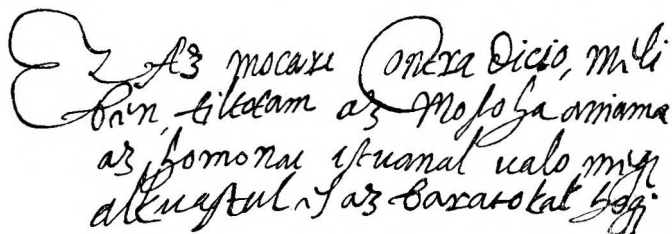 Ez Az mocari Contra dicio, mili
ben tiltotam az Mosoha aniama
az homonai istuanal ualo megi
alkuastul is az baratokat hogi